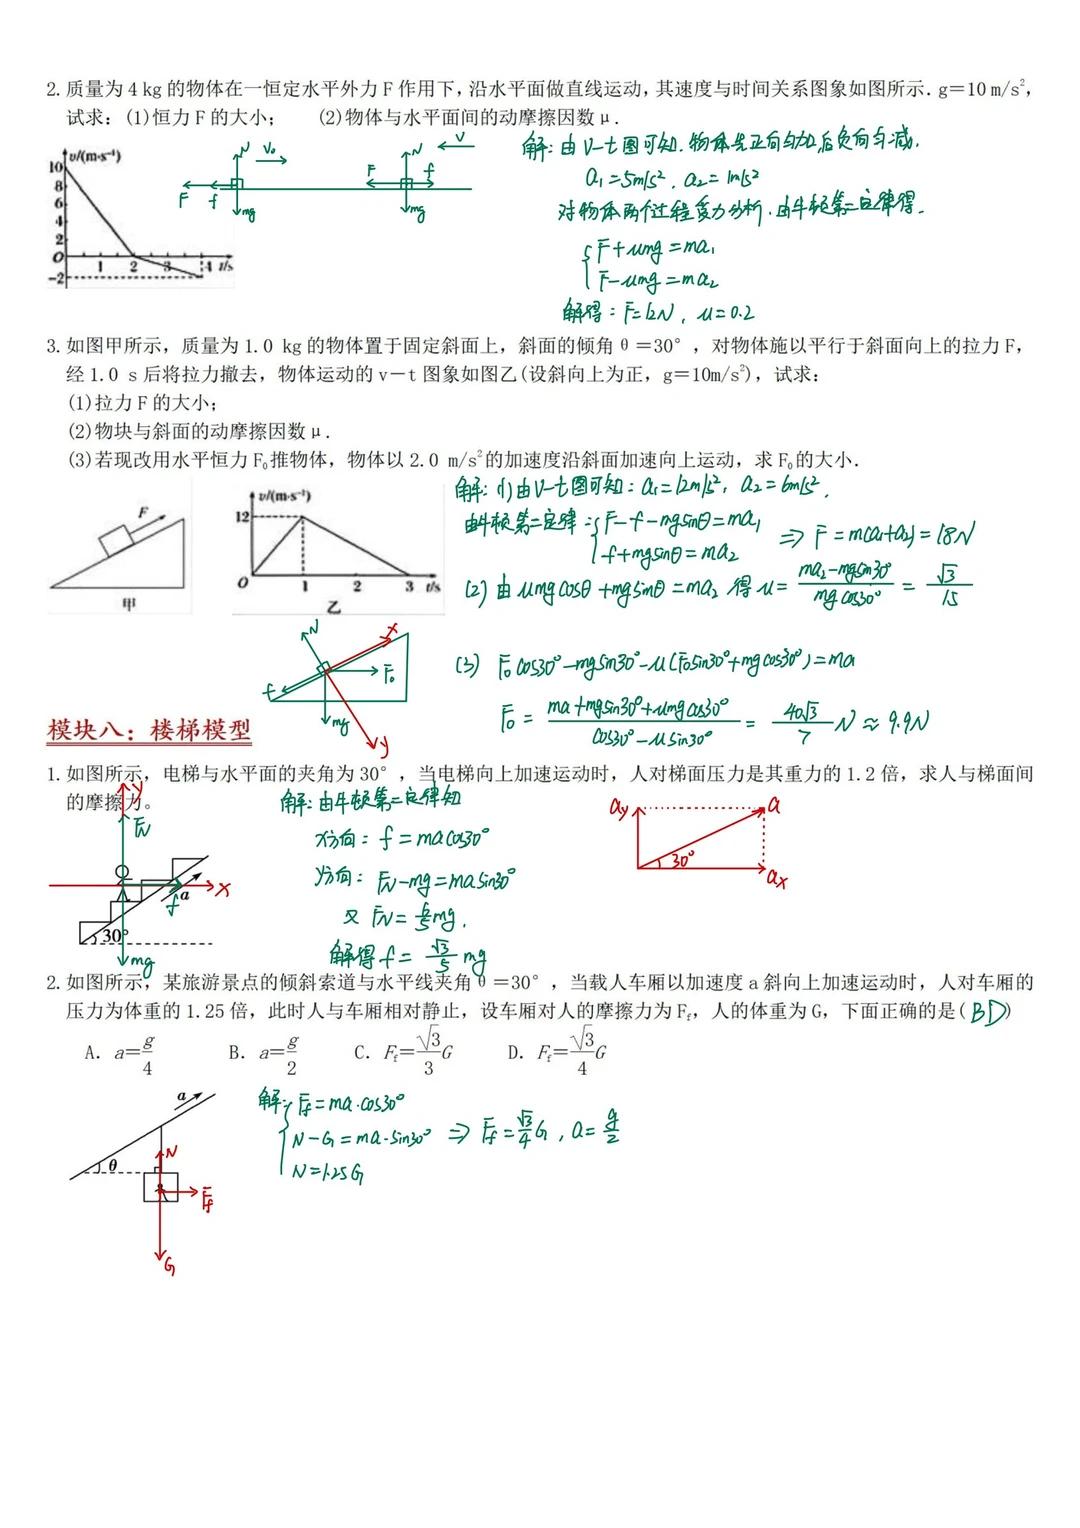 2. 质量为 4 kg 的物体在一恒定水平外力 F 作用下，沿水平面做直线运动，其速度与时间关系图象如图所示．g＝10 m/s²，
试求：(1)恒力 F 的大小； (2)物体与水平面间的动摩擦因数 μ．
v/(m·s⁻¹)
10
8
6
4
2
O
-2
1 2 3 4 t/s
N V₀
F f
mg
N V
F f
mg
解：由 V-t 图可知．物体先正向匀加后负向匀减．
a₁=5m/s²，a₂=1m/s²
对物体两个过程受力分析．由牛顿第二定律得．
F+μmg=ma₁
F-μmg=ma₂
解得：F=12N，μ=0.2
3. 如图甲所示，质量为 1.0 kg 的物体置于固定斜面上，斜面的倾角 θ＝30°，对物体施以平行于斜面向上的拉力 F，
经 1.0 s 后将拉力撤去，物体运动的 v－t 图象如图乙(设斜向上为正，g＝10m/s²)，试求：
(1)拉力 F 的大小；
(2)物块与斜面的动摩擦因数 μ．
(3)若现改用水平恒力 F₀推物体，物体以 2.0 m/s²的加速度沿斜面加速向上运动，求 F₀的大小．
F
甲
v/(m·s⁻¹)
12
O 1 2 3 t/s
乙
解：(1)由V-t图可知：a₁=12m/s²，a₂=6m/s²．
由牛顿第二定律：F-f-mgsinθ=ma₁
f+mgsinθ=ma₂
⇒ F=m(a₁+a₂)=18N
(2) 由 μmgcosθ+mgsinθ=ma₂ 得 μ= (ma₂-mgsin30°)/(mgcos30°) = √3/15
N x
F₀
f
mg
y
(3) F₀cos30°-mgsin30°-μ(F₀sin30°+mgcos30°)=ma
F₀ = (ma+mgsin30°+μmgcos30°)/(cos30°-μsin30°) = 40√3/7 N ≈ 9.9N
模块八：楼梯模型
1. 如图所示，电梯与水平面的夹角为 30°，当电梯向上加速运动时，人对梯面压力是其重力的 1.2 倍，求人与梯面间
的摩擦力。
y
FN
x
a
f
30°
mg
解：由牛顿第二定律知
x方向：f=macos30°
y方向：FN-mg=masin30°
又 FN=6/5mg．
解得 f= √3/5 mg
ay a
30°
ax
2. 如图所示，某旅游景点的倾斜索道与水平线夹角 θ＝30°，当载人车厢以加速度 a 斜向上加速运动时，人对车厢的
压力为体重的 1.25 倍，此时人与车厢相对静止，设车厢对人的摩擦力为 Ff，人的体重为 G，下面正确的是( BD )
A．a=g/4 B．a=g/2 C．Ff=√3/3G D．Ff=√3/4G
a
θ
N
Ff
G
解：Ff=ma·cos30°
N-G=ma·sin30° ⇒ Ff=√3/4G，a=g/2
N=1.25G